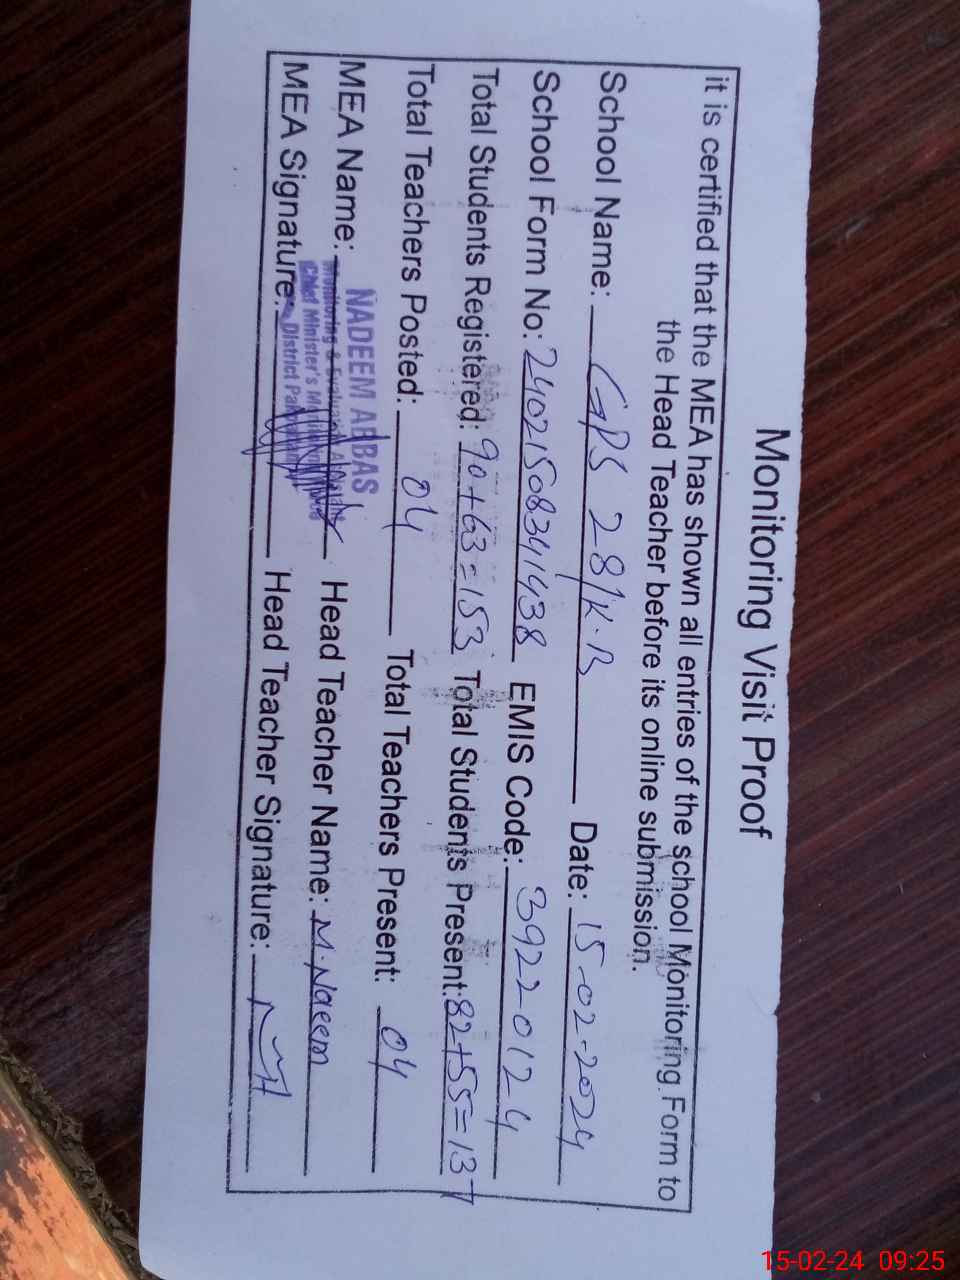 Monitoring Visit Proof
it is certified that the MEA has shown all entries of the school Monitoring Form to
the Head Teacher before its online submission.
School Name: GPS 28/K.B Date: 15-02-2024
School Form No: 24021508341438 EMIS Code: 39220124
Total Students Registered: 90+63=153 Total Students Present: 82+55=137
Total Teachers Posted: 04 Total Teachers Present: 04
MEA Name: NADEEM ABBAS Head Teacher Name: M.Naeem
Monitoring & Evaluation Assistant
Chief Minister's Monitoring
District Pakpattan
MEA Signature: Head Teacher Signature:
15-02-24 09:25